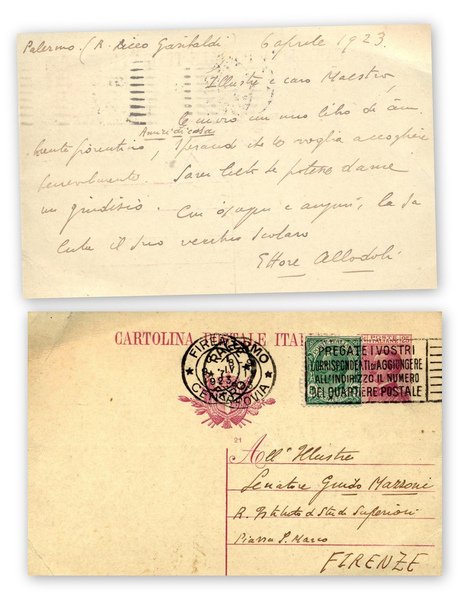 Palermo. (R. Liceo Garibaldi) 6 aprile 1923.
Illustre e caro Maestro,
Le invio un mio libro di am-
Amori di casa
biente fiorentino, sperando che lo voglia accogliere
benevolmente. Sarei lieto se potesse darne
un giudizio. Con ossequi e auguri, la sa
luta il suo vecchio scolaro
Ettore Allodoli
CARTOLINA POSTALE ITAL
FIRENZE
CENTRO
FERROVIA
1923
PREGATE I VOSTRI
CORRISPONDENTI DI AGGIUNGERE
ALL'INDIRIZZO IL NUMERO
DEL QUARTIERE POSTALE
21
All' Illustre
Senatore Guido Mazzoni
R. Istituto di Studi Superiori
Piazza S. Marco
FIRENZE